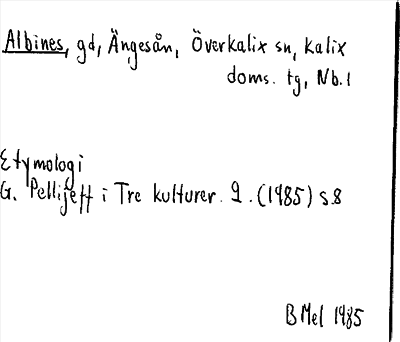 Albines, gd, Ängesån, Överkalix sn, Kalix
doms. tg, Nb.l
Etymologi
G. Pellijeff i Tre kulturer. 2. (1985) s.8
B Mel 1985